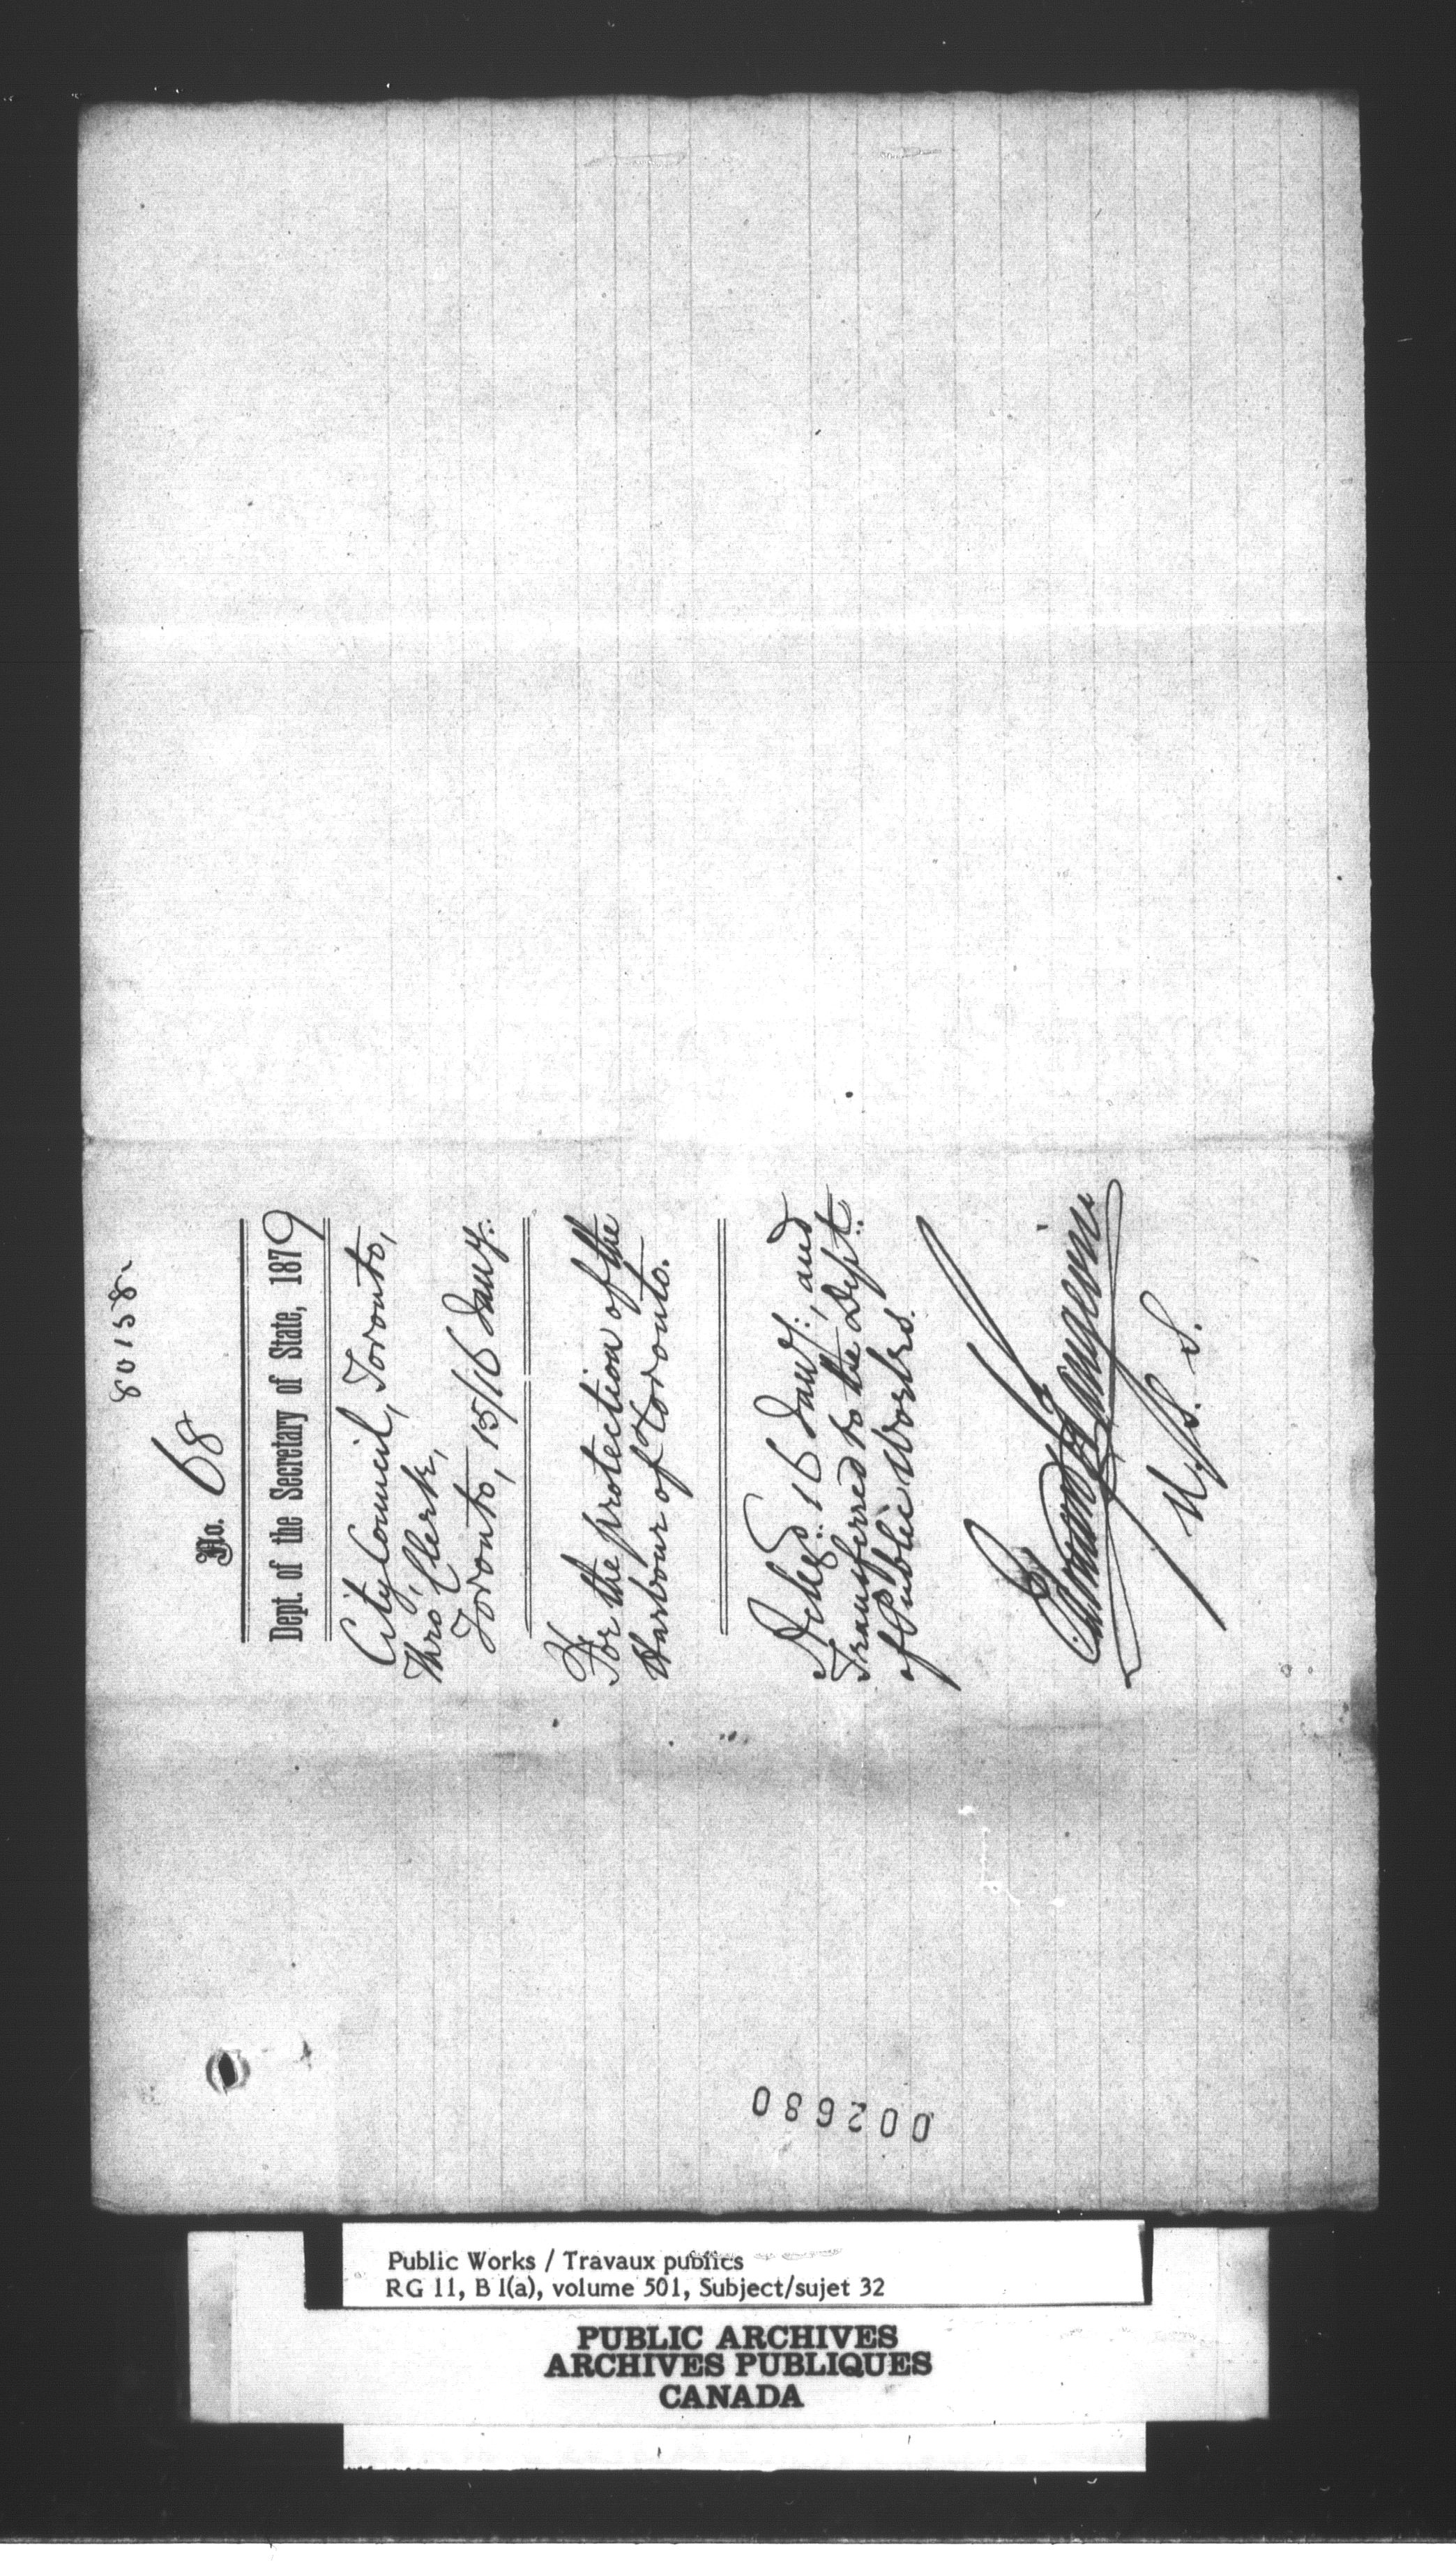 80158
No. 68
Dept. of the Secretary of State, 1879
City Council, Toronto,
Thro' Clerk,
Toronto, 15/16 Jany.
For the protection of the
Harbour of Toronto.
16 Jany., and
Transferred to the Dept.
of Public Works.
Edouard J. Langevin
U. S. S.
002680
Public Works / Travaux publics
RG 11, B 1(a), volume 501, Subject/sujet 32
PUBLIC ARCHIVES
ARCHIVES PUBLIQUES
CANADA